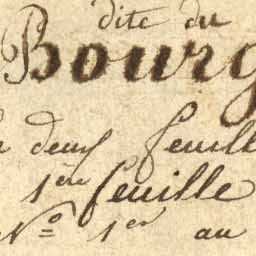 dite du
Bourg
deux feuill
1ère feuille
N° 1er au